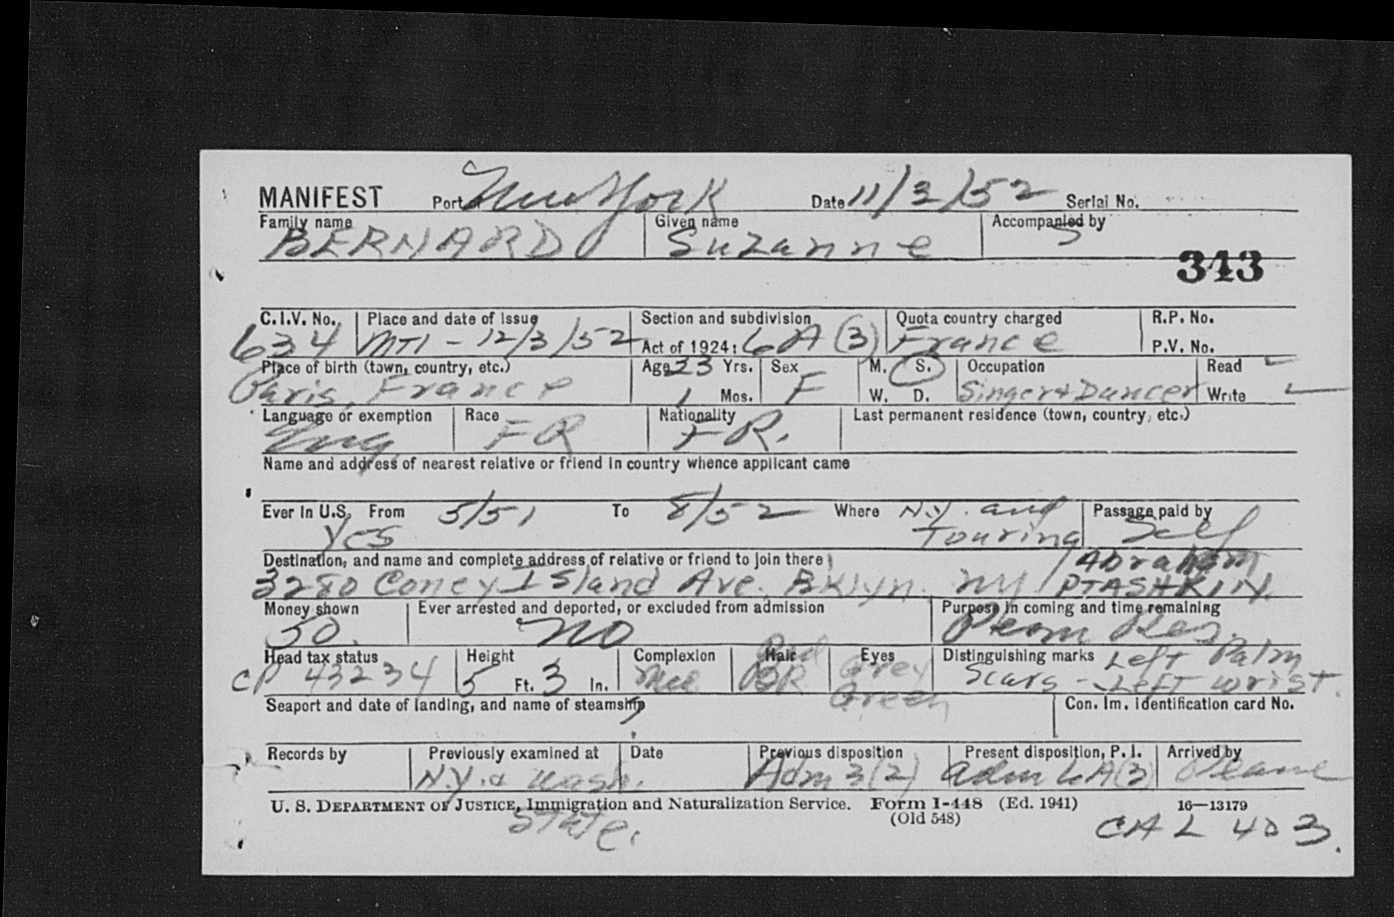 MANIFEST Port of New York Date 11/3/52 Serial No.
Family name Given name Accompanied by
BERNARD Suzanne
343
C.I.V. No. Place and date of issue Section and subdivision Quota country charged R.P. No.
634 MTl - 12/3/52 Act of 1924: 6A (3) France P.V. No.
Place of birth (town, country, etc.) Age 23 Yrs. Sex M. S. Occupation Read ✓
Paris, France 1 Mos. F W. D. Singer & Dancer Write ✓
Language or exemption Race Nationality Last permanent residence (town, country, etc.)
Eng. FR FR.
Name and address of nearest relative or friend in country whence applicant came
Ever in U.S. From 5/51 To 8/52 Where N.Y. and Passage paid by
Yes Touring Self
Destination, and name and complete address of relative or friend to join there Abraham
3280 Coney Island Ave. BKlyn. NY / PTASHKIN.
Money shown Ever arrested and deported, or excluded from admission Purpose in coming and time remaining
50. NO Perm Res.
Head tax status Height Complexion Hair Red Eyes Grey Distinguishing marks Left Palm
CP 43234 5 Ft. 3 In. Med BR Green Scars - Left wrist.
Seaport and date of landing, and name of steamship Con. Im. Identification card No.
Records by Previously examined at Date Previous disposition Present disposition, P. I. Arrived by
N.Y. & Wash. Adm 3(2) adm 6A(3) Plane
U. S. DEPARTMENT OF JUSTICE, Immigration and Naturalization Service. Form I-448 (Ed. 1941) 16—13179
(Old 548)
State. CAL 403.